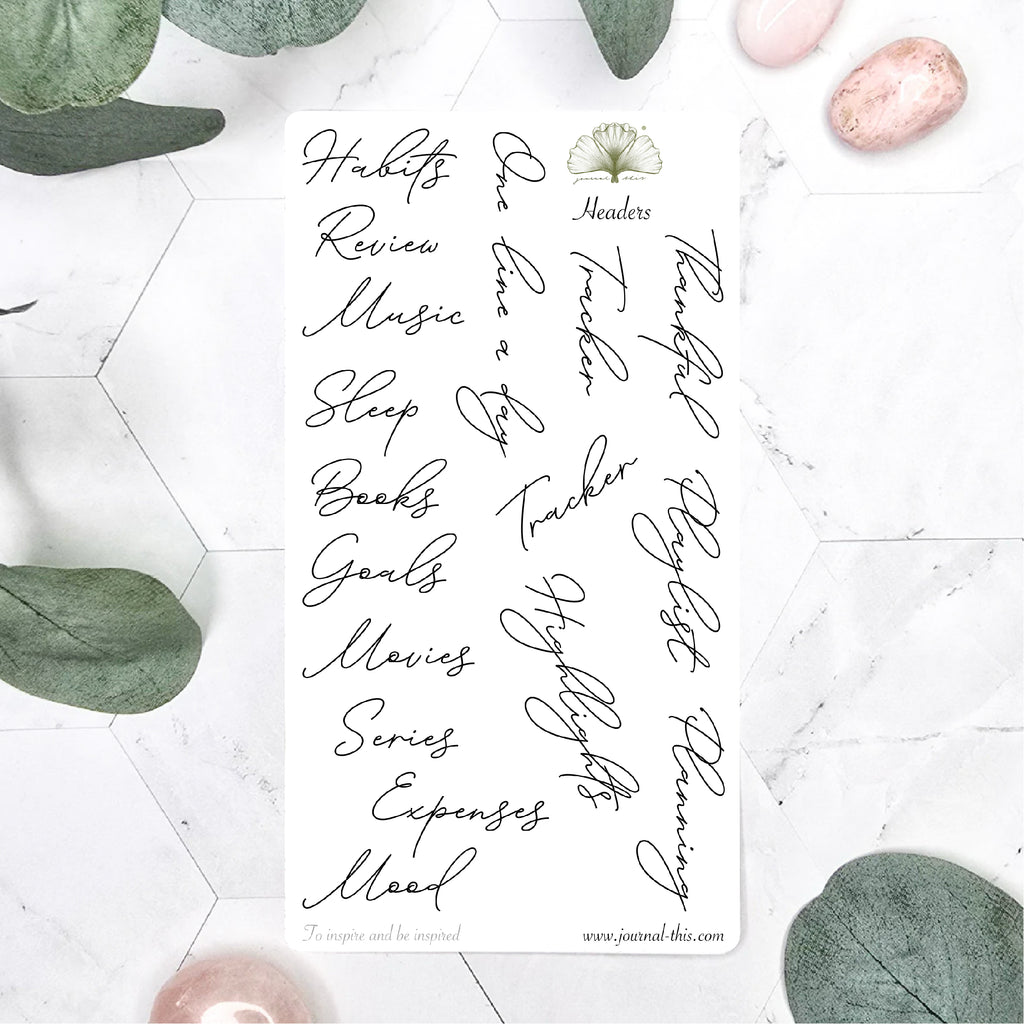 Habits
Review
Music
Sleep
Books
Goals
Movies
Series
Expenses
Mood
One line a day
journal this
®
Headers
Tracker
Thankful
Tracker
Playlist
Highlights
Planning
To inspire and be inspired
www.journal-this.com